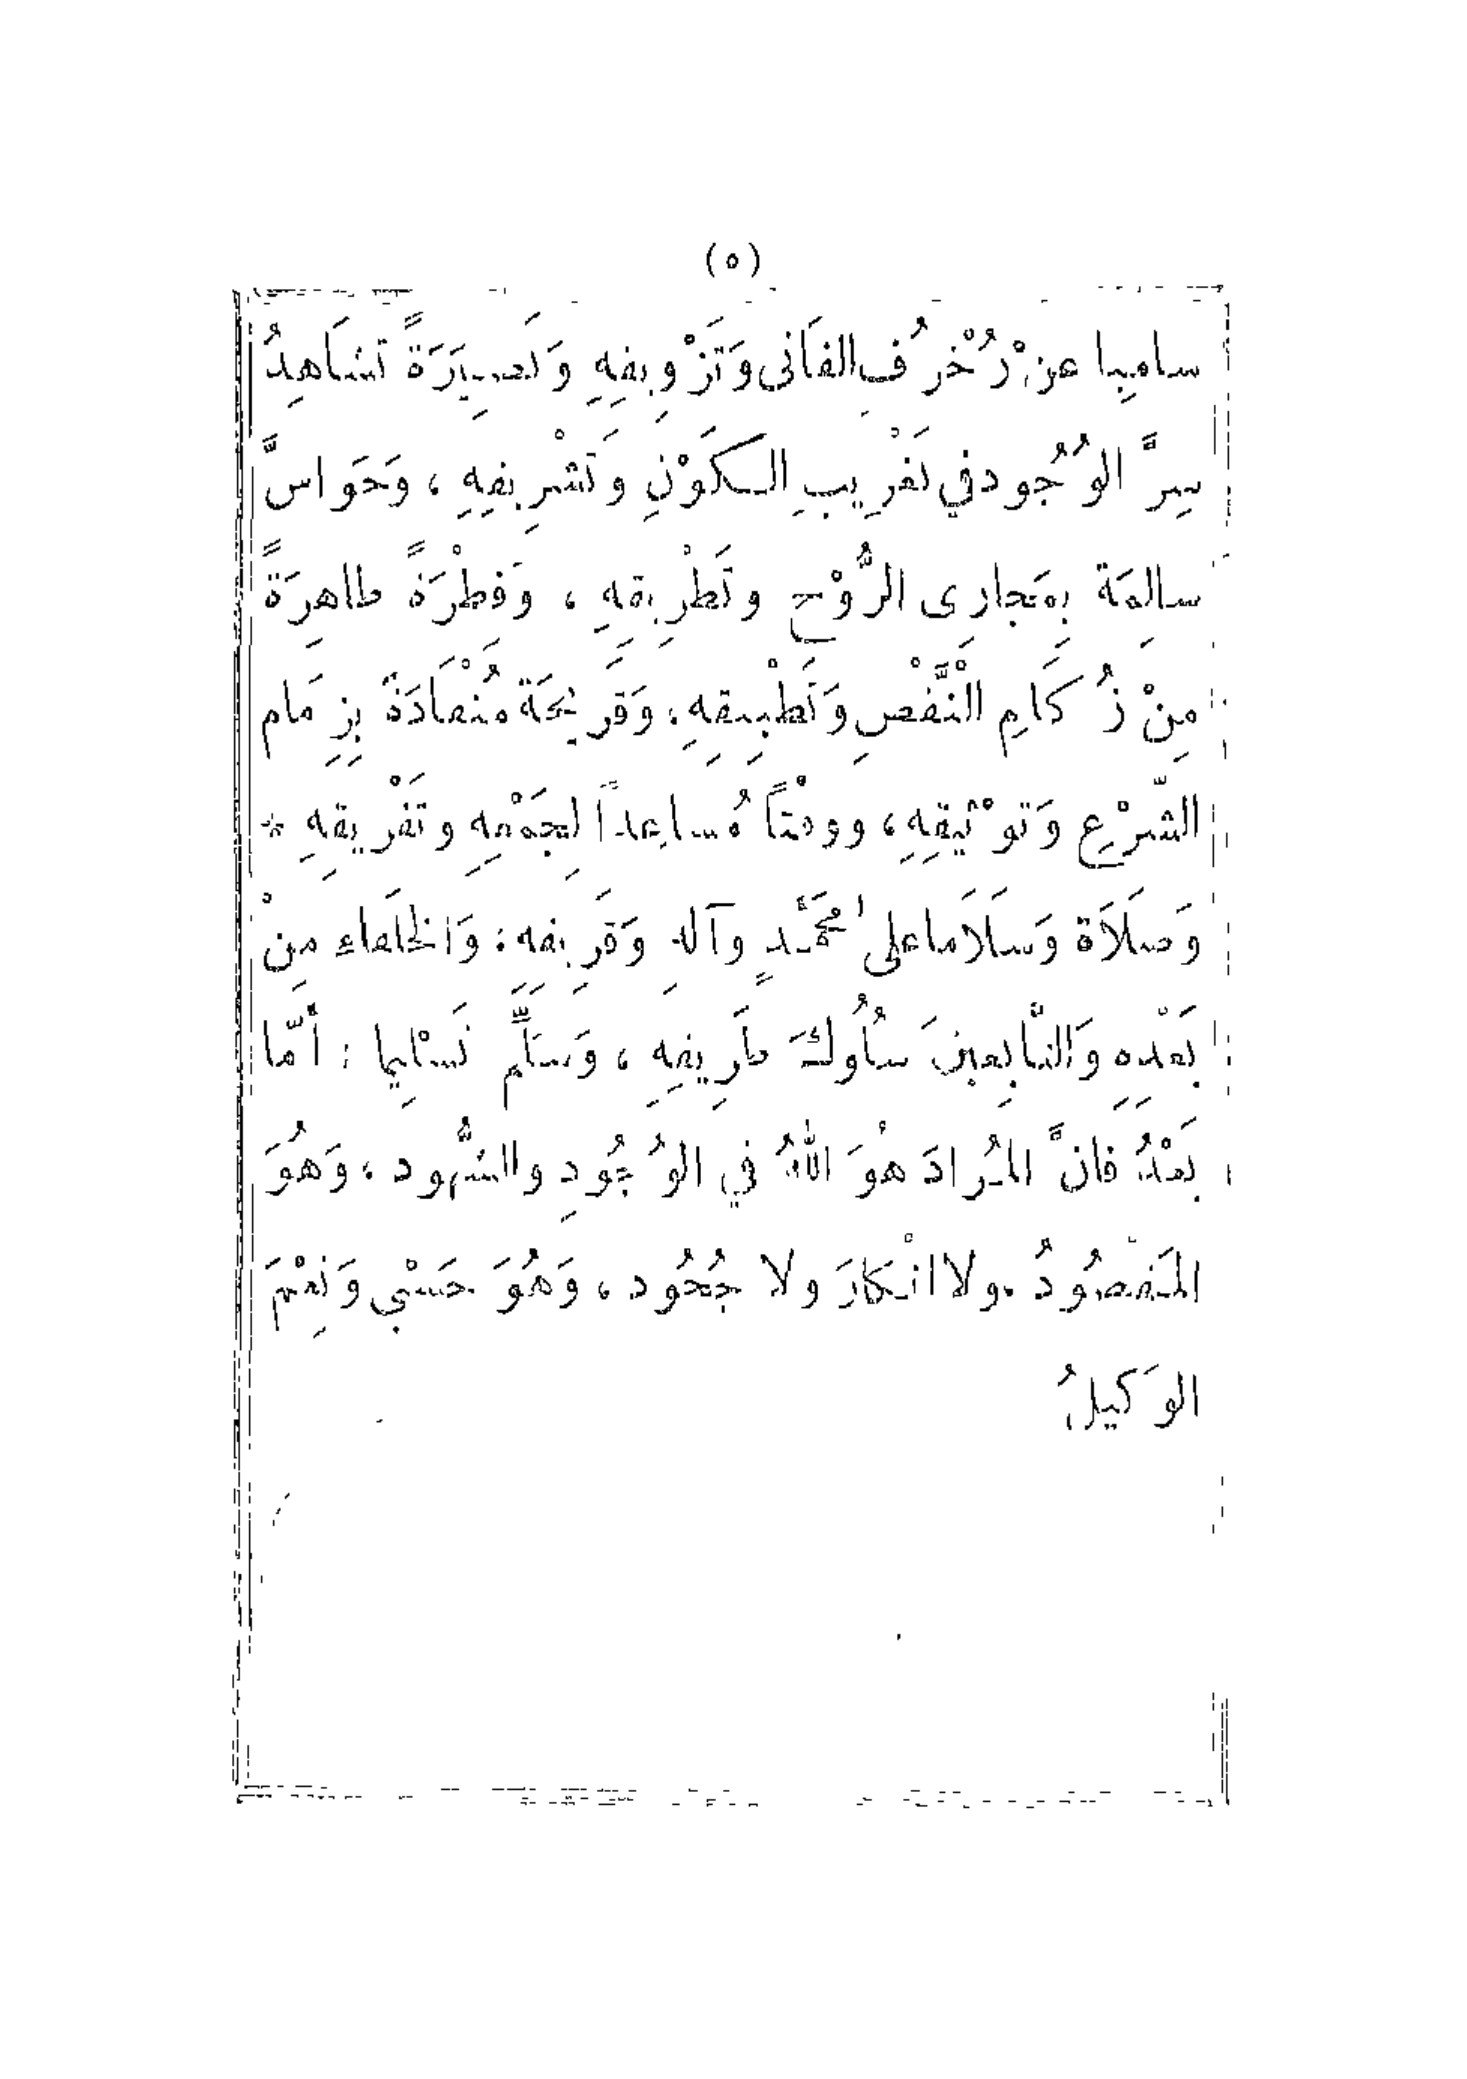 (٥)
ساميا عن زُخْرُفِ الفَانى وَتَزْوِيقِهِ وَبَصِيرَةً تشَاهِدُ
سِرَّ الوُجُود في تَغْرِيبِ الكَوْنِ وَتَشْرِيقِهِ ، وَحَوَاسَّ
سالِمَة بِمَجارِى الرُّوْح وتَطْرِيقِهِ ، وَفطْرَةً طاهِرَةً
مِنْ زُكَامِ النَّقْصِ وَتَطْبِيقِهِ ، وَقَرِيحَة مُنْقَادَةً بِزِمَام
الشّرْعِ وَتَوْثيقِهِ ، ووقْتاً مُساعِداً لِجَمْعِهِ وتَفْرِيقِهِ *
وَصَلَاة وَسَلَاما على مُحَمَّدٍ وآلهِ وَفَرِيقِهِ : وَالخلَفاء مِنْ
بَعْدِهِ وَالتَّابِعينَ سُلُوكَ طَرِيقِهِ ، وَسَلِّم تَسْلِيما : أمّا
بَعْدُ فانَّ المُرادَ هُوَ اللهُ في الوُجُودِ والشُّهود ، وَهُوَ
المَقْصُودُ . ولا انْكارَ ولا جُحُود ، وَهُوَ حَسْبي وَنِعْمَ
الوَكيلُ